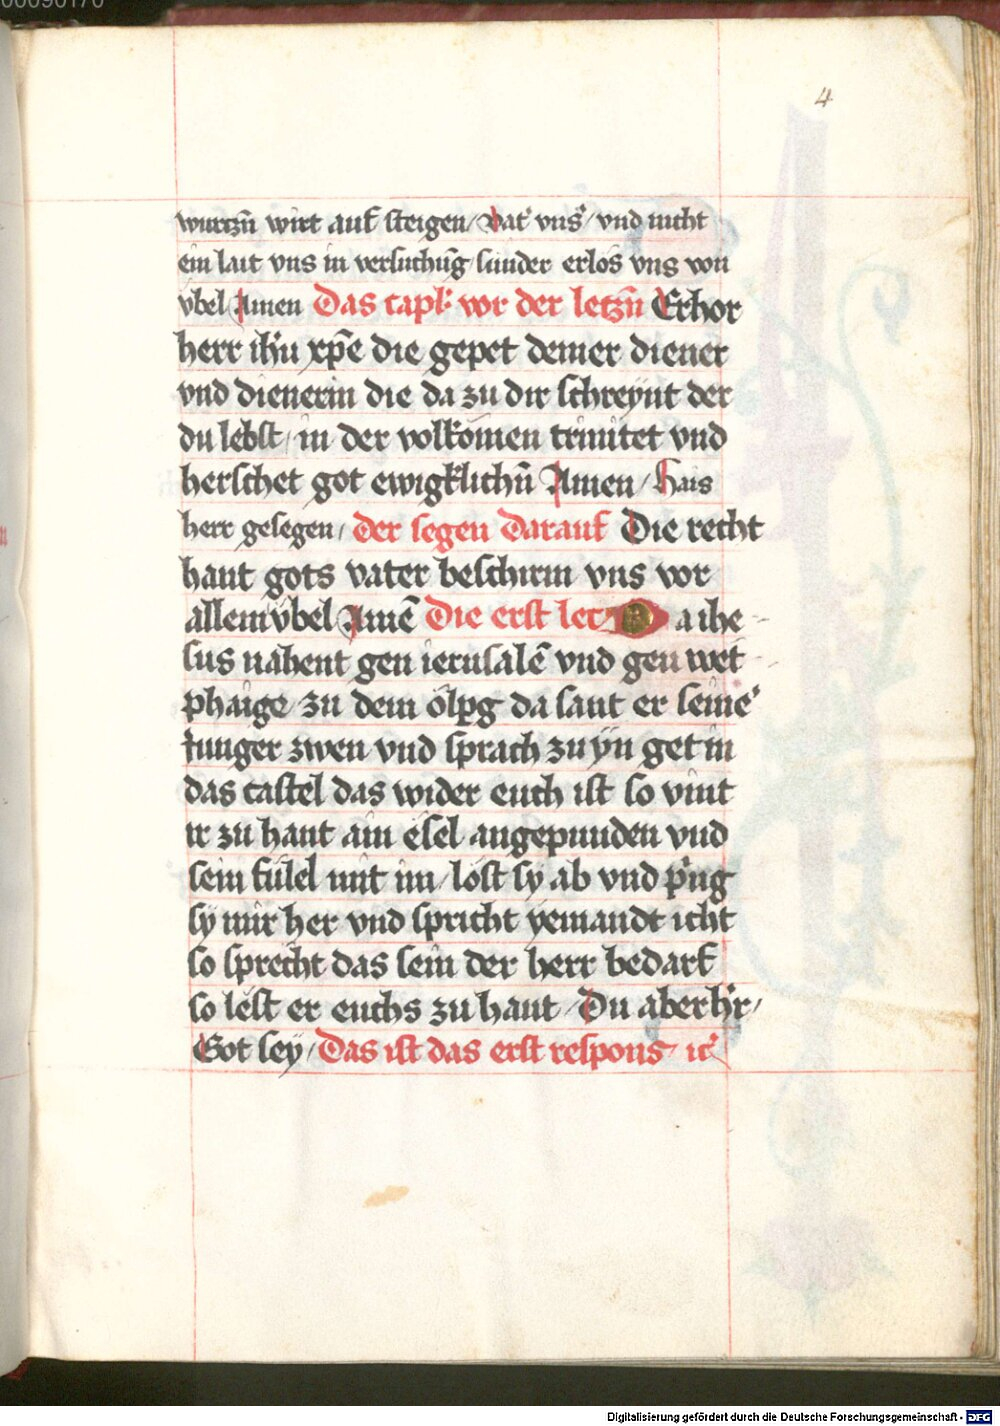 00090170
4
wurtzn̄ wirt auf steigen / Vat' vns' / vnd nicht
ein lait vns in versuchūg / sunder erlos vns von
vbel Amen Das capl' vor der letzn̄ Erhor
herr ih'u xp̄e die gepet deiner diener
vnd dienerin die da zu dir schreÿnt der
du lebst / in der volkomen trinitet vnd
herschet got ewigklichn̄ Amen / Hais
herr gesegen / der segen darauf Die recht
hant gots vater beschirm vns vor
allem vbel Amē Die erst lec Da ihe
sus nahent gen ierusalē vnd gen wet
phaige / zu dem ölpg da sant er seine'
iunger zwen vnd sprach zu ÿn get in
das castel das wider euch ist so vint
ir zu hant ain esel angepunden vnd
sein fülel mit im / löst sÿ ab vnd p'ng
sÿ mir her vnd spricht ÿemandt icht
so sprecht das sein der herr bedarf
so lest er euchs zu hant / Du aber h'r /
Got seÿ / Das ist das erst respons
Digitalisierung gefördert durch die Deutsche Forschungsgemeinschaft - DFG